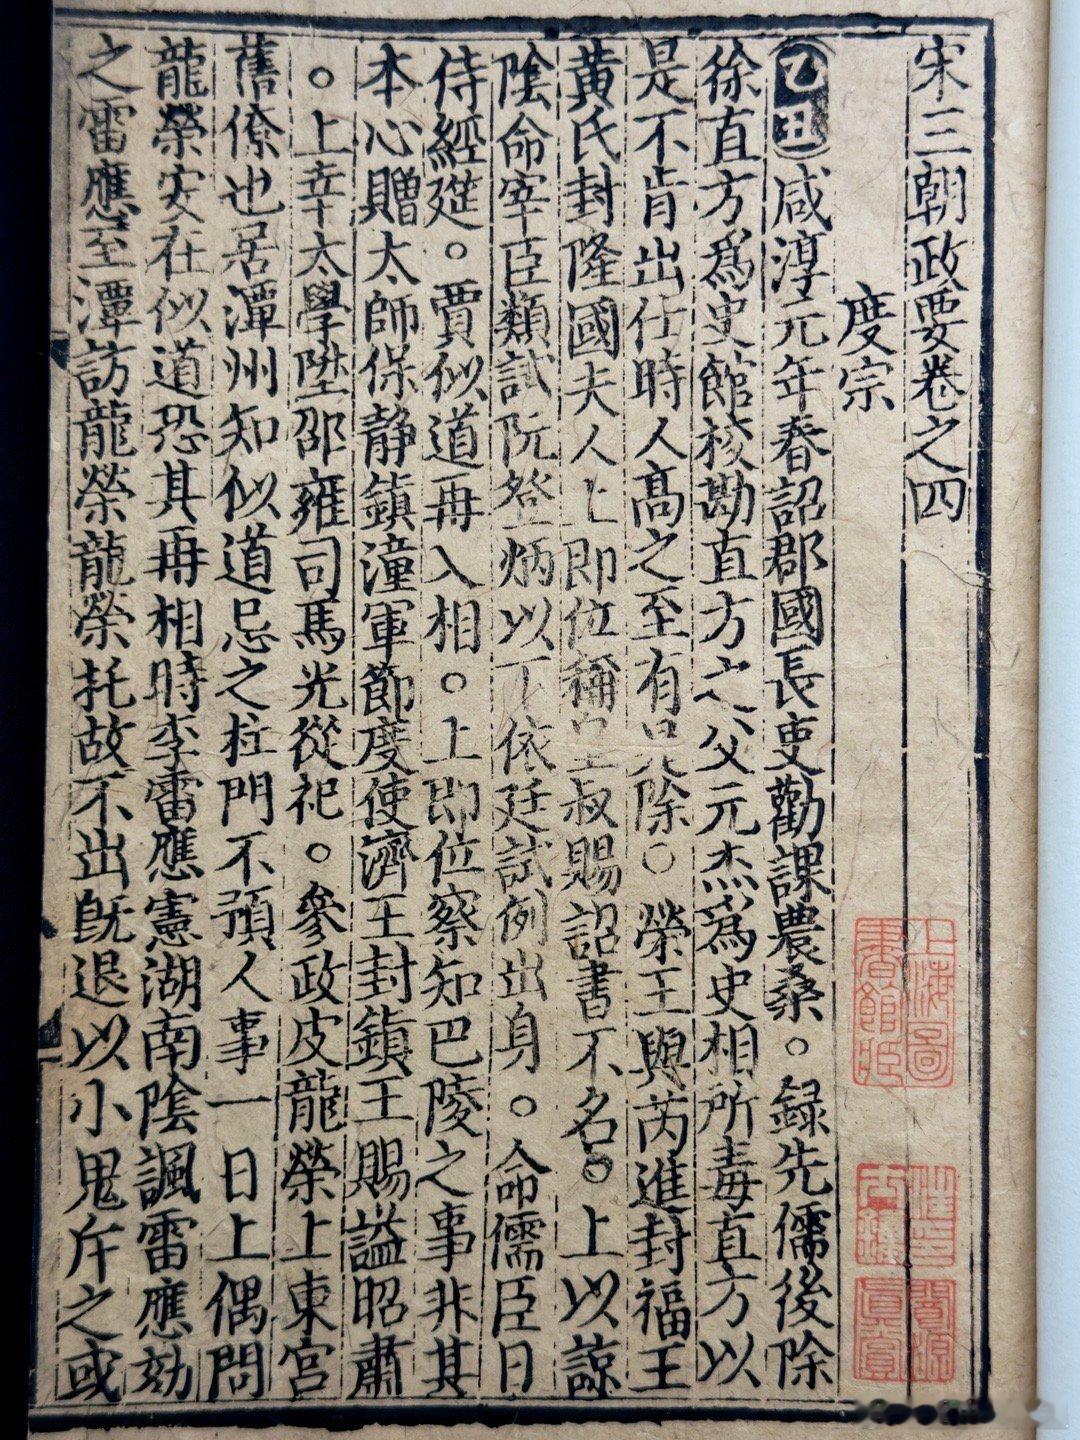 宋三朝政要卷之四
度宗
乙丑咸淳元年春詔郡國長吏勸課農桑。録先儒後除
徐直方爲史館校勘直方之父元杰爲史相所毒直方以
是不肯出仕時人髙之至有是除○榮王與芮進封福王
黄氏封隆國夫人上即位稱皇叔賜詔書不名。上以諒
陰命宰臣類試阮登炳以下依廷試例出身。命儒臣日
侍經筵。賈似道再入相。上即位察知巴陵之事非其
本心贈太師保静鎮潼軍節度使濟王封鎮王賜謚昭肅
。上幸太學陞邵雍司馬光從祀。參政皮龍榮上東宮
舊僚也居潭州知似道忌之杜門不預人事一日上偶問
龍榮安在似道恐其再相時李雷應憲湖南陰諷雷應劾
之雷應至潭訪龍榮龍榮托故不出既退以小鬼斥之或
上海圖
書館臧
汪士
鐘
閬源
真賞